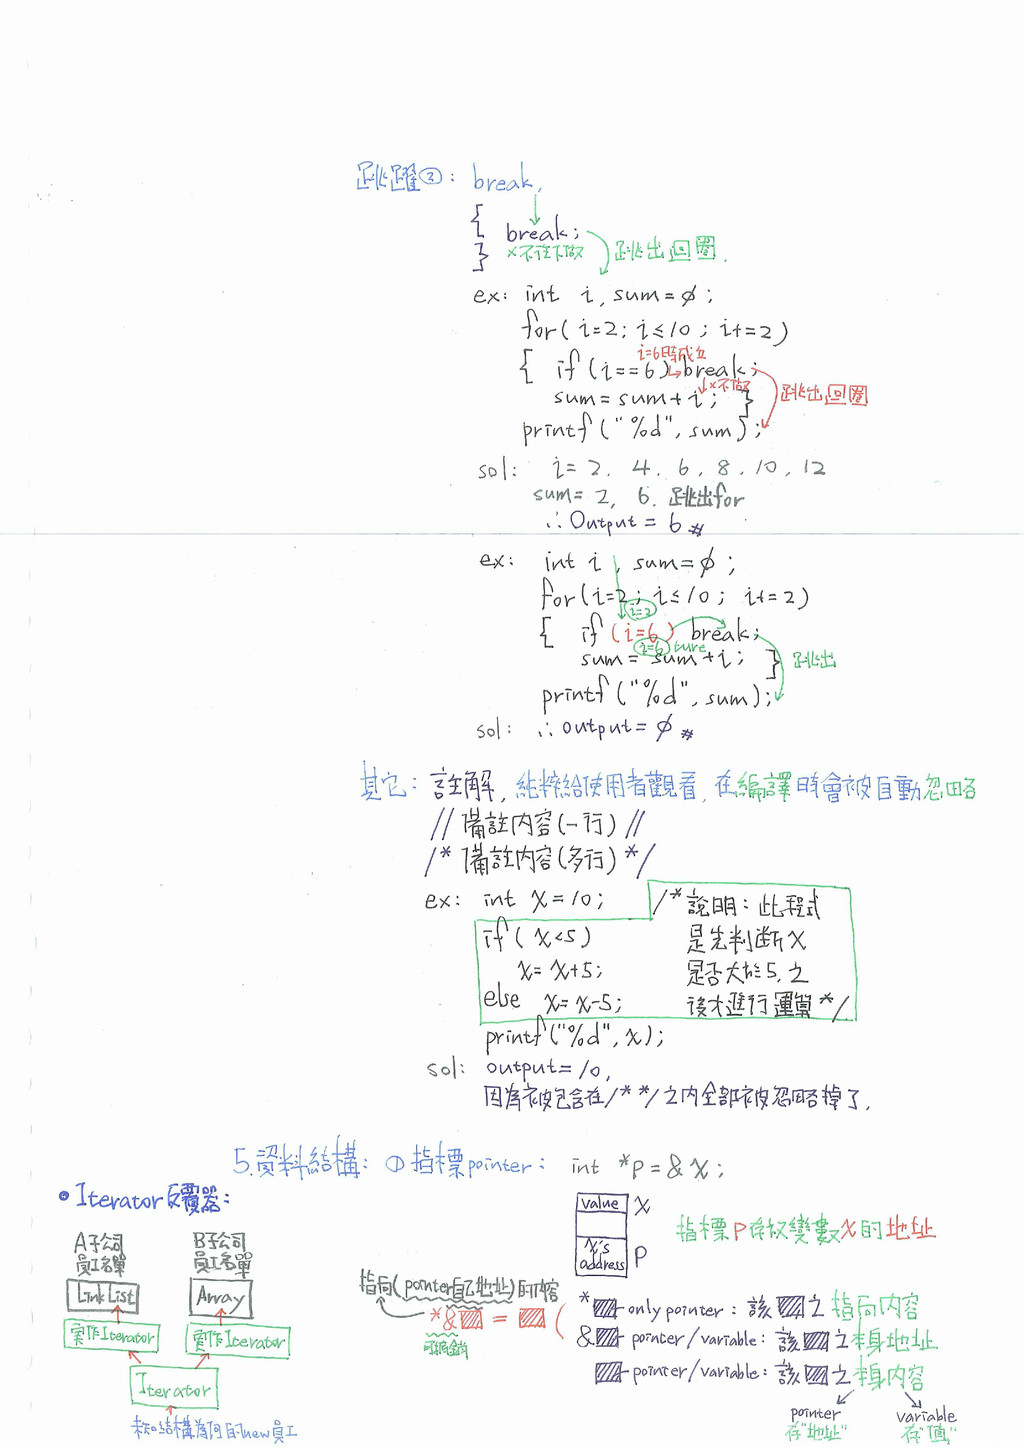 跳躍②: break,
{ break;
} ×不往下做 跳出迴圈.
ex: int i, sum=ø;
for( i=2; i≤10; i+=2)
i=6時成立
{ if (i==6) break;
×不做 跳出迴圈
sum = sum + i; }
printf("%d", sum);
sol: i= 2, 4, 6, 8, 10, 12
sum= 2, 6. 跳出for
∴Output = 6 #
ex: int i, sum=ø;
for(i=2; i≤10; i+=2)
i=2
{ if (i=6) break;
i=6 ture
sum = sum + i; } 跳出
printf("%d", sum);
sol: ∴output = ø #
其它: 註解, 純粹給使用者觀看, 在編譯時會被自動忽略
// 備註內容(一行) //
/* 備註內容(多行) */
ex: int x=10; /*說明: 此程式
if( x<5) 是先判斷x
x= x+5; 是否大於5, 之
else x= x-5; 後才進行運算*/
printf("%d", x);
sol: output=10,
因為被包含在/**/之內全部被忽略掉了.
5.資料結構: ① 指標pointer: int *p = & x;
• Iterator反覆器:
value x
x's address P
指標P存放變數x的地址
A子公司員工名單
B子公司員工名單
LinkList
Array
實作Iterator
實作Iterator
Iterator
未知結構為何的new員工
指向(pointer自己地址)的內容
*& = (
可抵銷
* only pointer: 該 之指向內容
& pointer/variable: 該 之本身地址
pointer/variable: 該 之本身內容
pointer 存"地址"
variable 存"值"